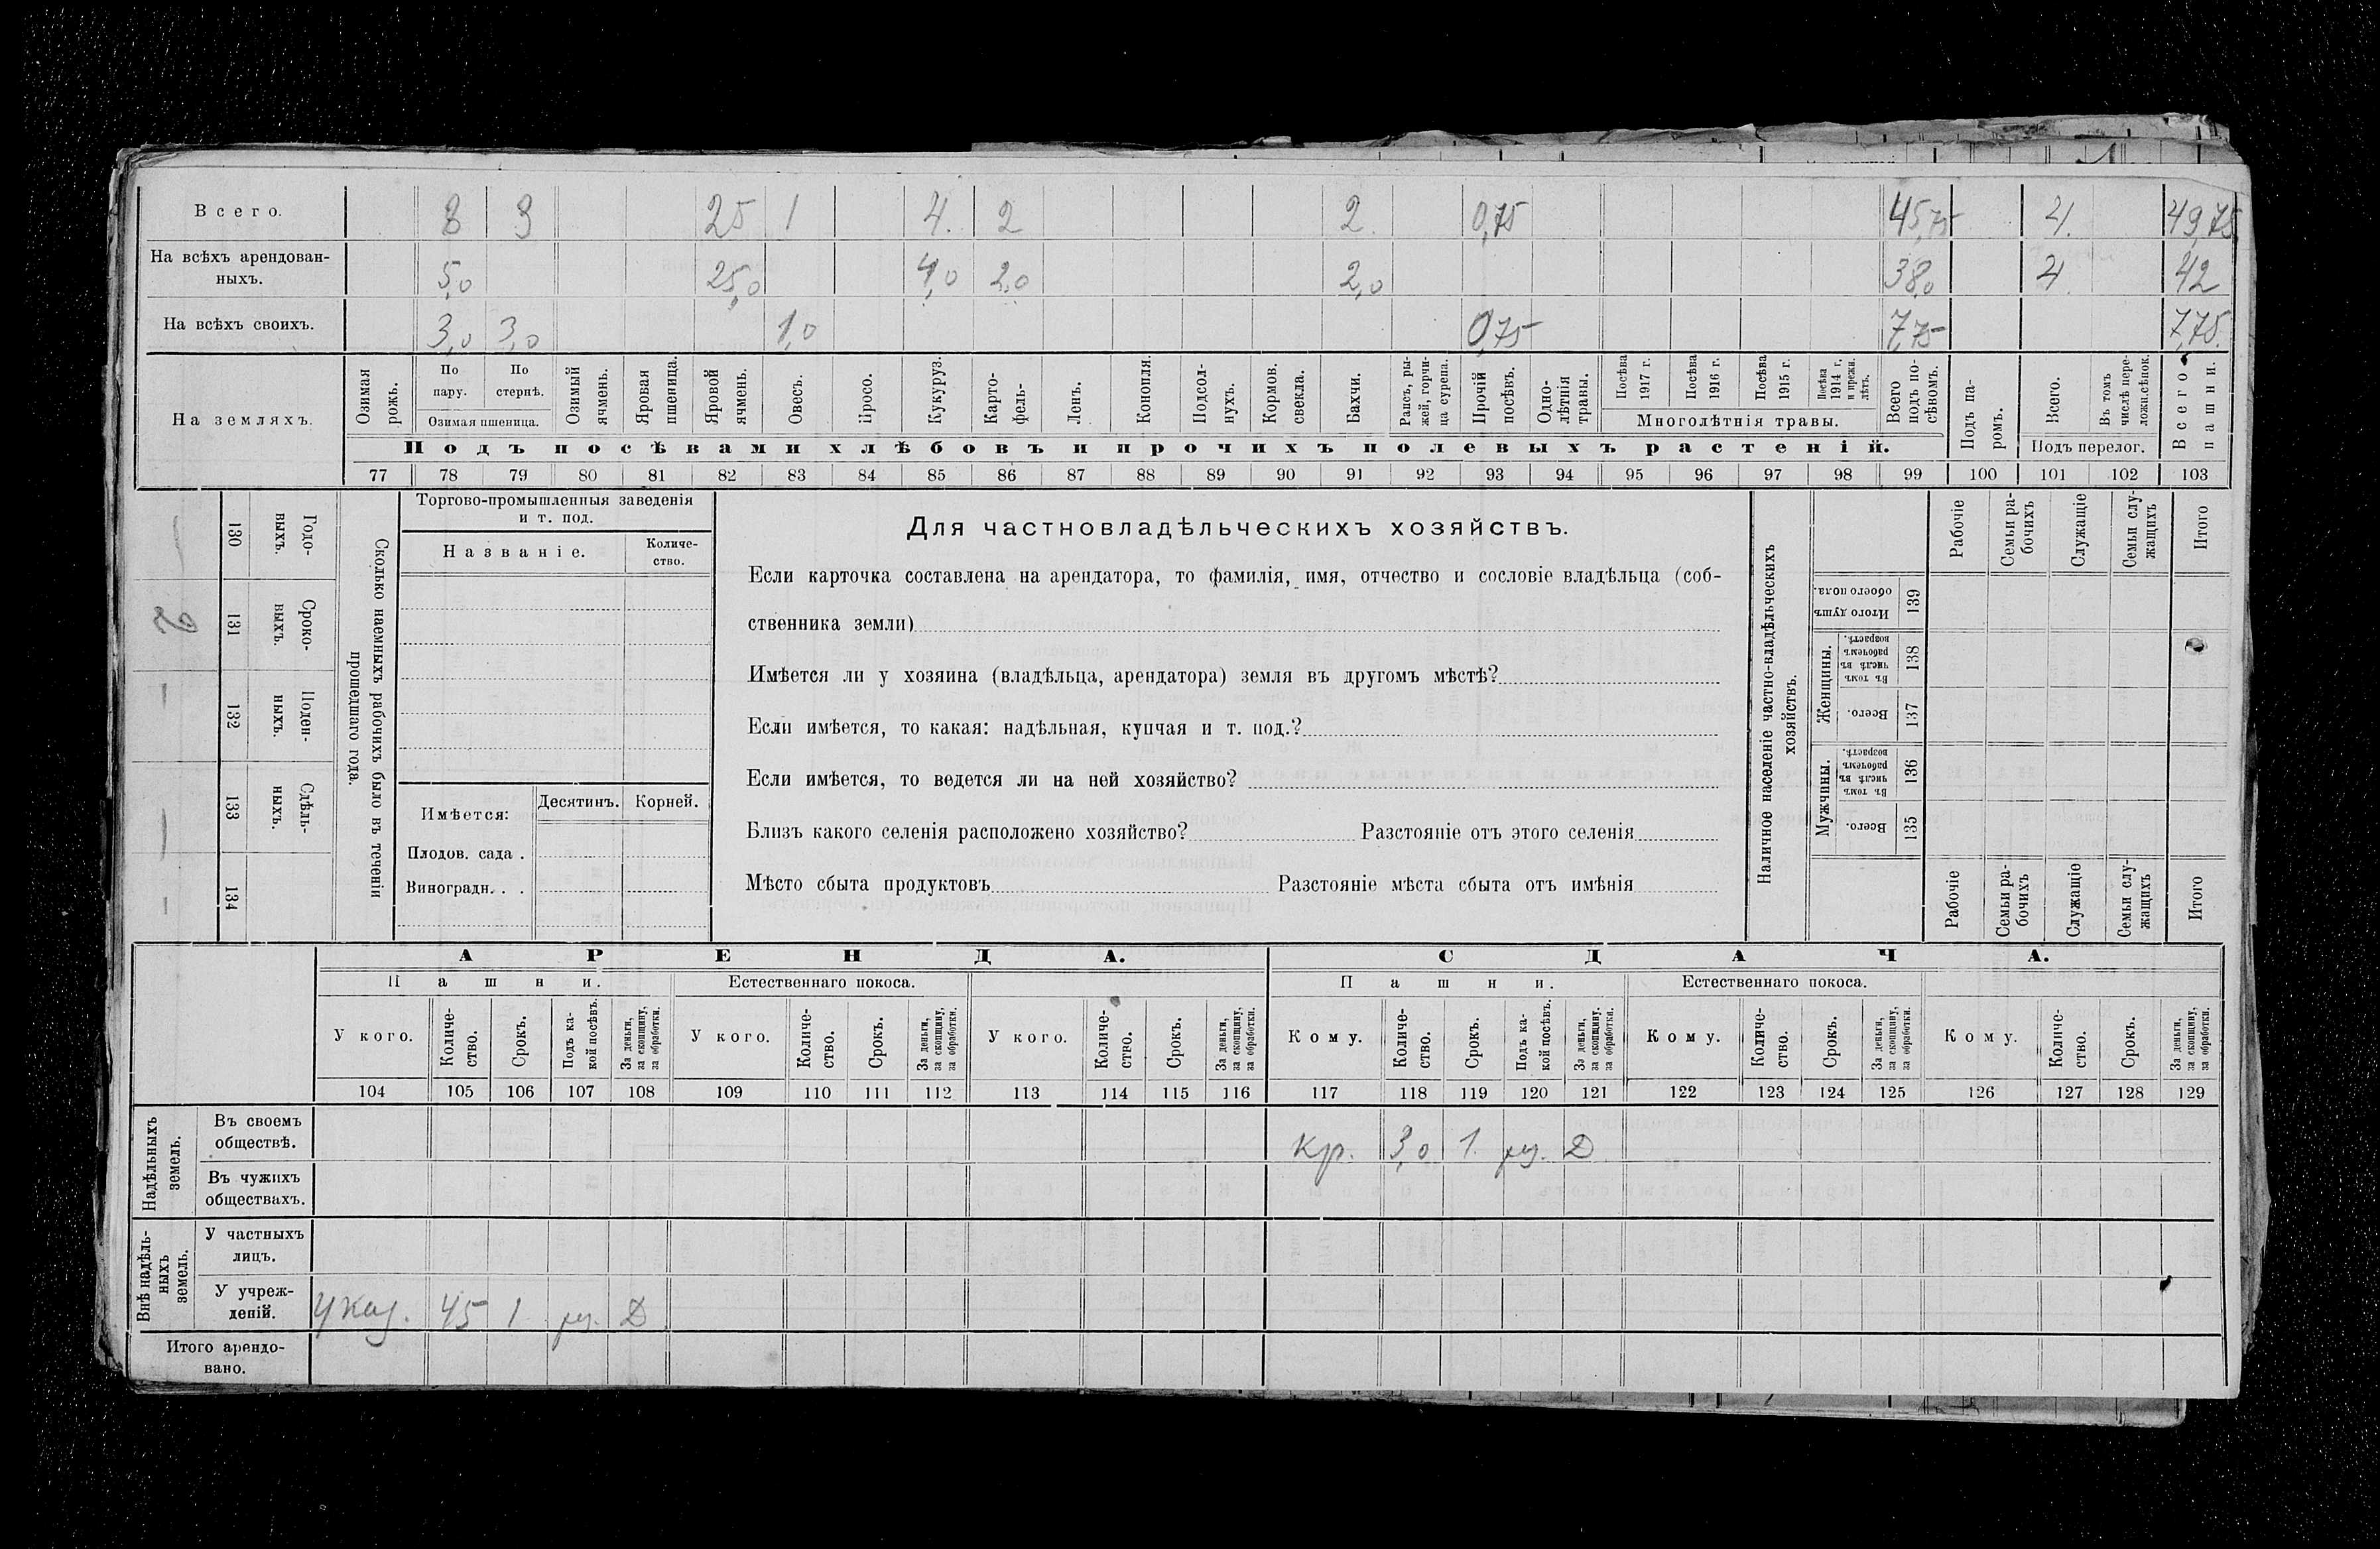 Всего. 8 3 25 1 4. 2 2. 0,75 45,75 4. 49,75
На всѣхъ арендован-
ныхъ. 5,0 25,0 4,0 2,0 2,0 38,0 4. 42
На всѣхъ своихъ. 3,0 3,0 1,0 0,75 7,75 7,75.
На земляхъ.
Озимая рожь.
По пару.
По стернѣ.
Озимая пшеница.
Озимый ячмень.
Яровая пшеница.
Яровой ячмень.
Овесъ.
Просо.
Кукуруз.
Карто-
фель-
Ленъ.
Конопля.
Подсол-
нухъ.
Кормов. свекла.
Бахчи.
Рапсъ, ры-
жей, горчи-
ца сурепа.
Прочій посѣвъ.
Одно-
лѣтнія травы.
Посѣва 1917 г.
Посѣва 1916 г.
Посѣва 1915 г.
Посѣва 1914 г. и прежн. лѣтъ.
Многолѣтнія травы.
Всего подъ по-
сѣвомъ.
Подъ посѣвами хлѣбовъ и прочихъ полевыхъ растеній.
Подъ па-
ромъ.
Всего.
Въ томъ числѣ пере-
ложн. сѣнок.
Подъ перелог.
Всего пашни.
77 78 79 80 81 82 83 84 85 86 87 88 89 90 91 92 93 94 95 96 97 98 99 100 101 102 103
Сколько наемныхъ рабочихъ было въ теченіи
прошедшаго года.
Годо-
выхъ.
130
Сроко-
выхъ.
131
Поден-
ныхъ.
132
Сдѣль-
ныхъ.
133
134
Торгово-промышленныя заведенія
и т. под.
Названіе.
Количе-
ство.
Имѣется:
Десятинъ.
Корней.
Плодов. сада .
Виноградн. . .
Для частновладѣльческихъ хозяйствъ.
Если карточка составлена на арендатора, то фамилія, имя, отчество и сословіе владѣльца (соб-
ственника земли)
Имѣется ли у хозяина (владѣльца, арендатора) земля въ другомъ мѣстѣ?
Если имѣется, то какая: надѣльная, купчая и т. под.?
Если имѣется, то ведется ли на ней хозяйство?
Близъ какого селенія расположено хозяйство? Разстояніе отъ этого селенія
Мѣсто сбыта продуктовъ Разстояніе мѣста сбыта отъ имѣнія
Наличное населеніе частно-владѣльческихъ
хозяйствъ.
Рабочіе
Семьи ра-
бочихъ
Служащіе
Семьи слу-
жащихъ
Итого
Итого душъ обоего пола.
139
Женщины.
Въ томъ числѣ въ рабочемъ возрастѣ.
138
Всего.
137
Мужчины.
Въ томъ числѣ въ рабочемъ возрастѣ.
136
Всего.
135
Рабочіе
Семьи ра-
бочихъ
Служащіе
Семьи слу-
жащихъ
Итого
АРЕНДА. СДАЧА.
Пашни. Естественнаго покоса. Пашни. Естественнаго покоса.
У кого.
Количе-
ство.
Срокъ.
Подъ ка-
кой посѣвъ.
За деньги, за скопщину, за обработки.
У кого.
Количе-
ство.
Срокъ.
За деньги, за скопщину, за обработки.
У кого.
Количе-
ство.
Срокъ.
За деньги, за скопщину, за обработки.
Кому.
Количе-
ство.
Срокъ.
Подъ ка-
кой посѣвъ.
За деньги, за скопщину, за обработки.
Кому.
Количе-
ство.
Срокъ.
За деньги, за скопщину, за обработки.
Кому.
Количе-
ство.
Срокъ.
За деньги, за скопщину, за обработки.
104 105 106 107 108 109 110 111 112 113 114 115 116 117 118 119 120 121 122 123 124 125 126 127 128 129
Надѣльныхъ
земель.
Въ своемъ
обществѣ. кр. 3,0 1. Д
Въ чужихъ
обществахъ.
Внѣ надѣль-
ныхъ
земель.
У частныхъ
лицъ.
У учреж-
деній. 45 1 Д
Итого арендо-
вано.